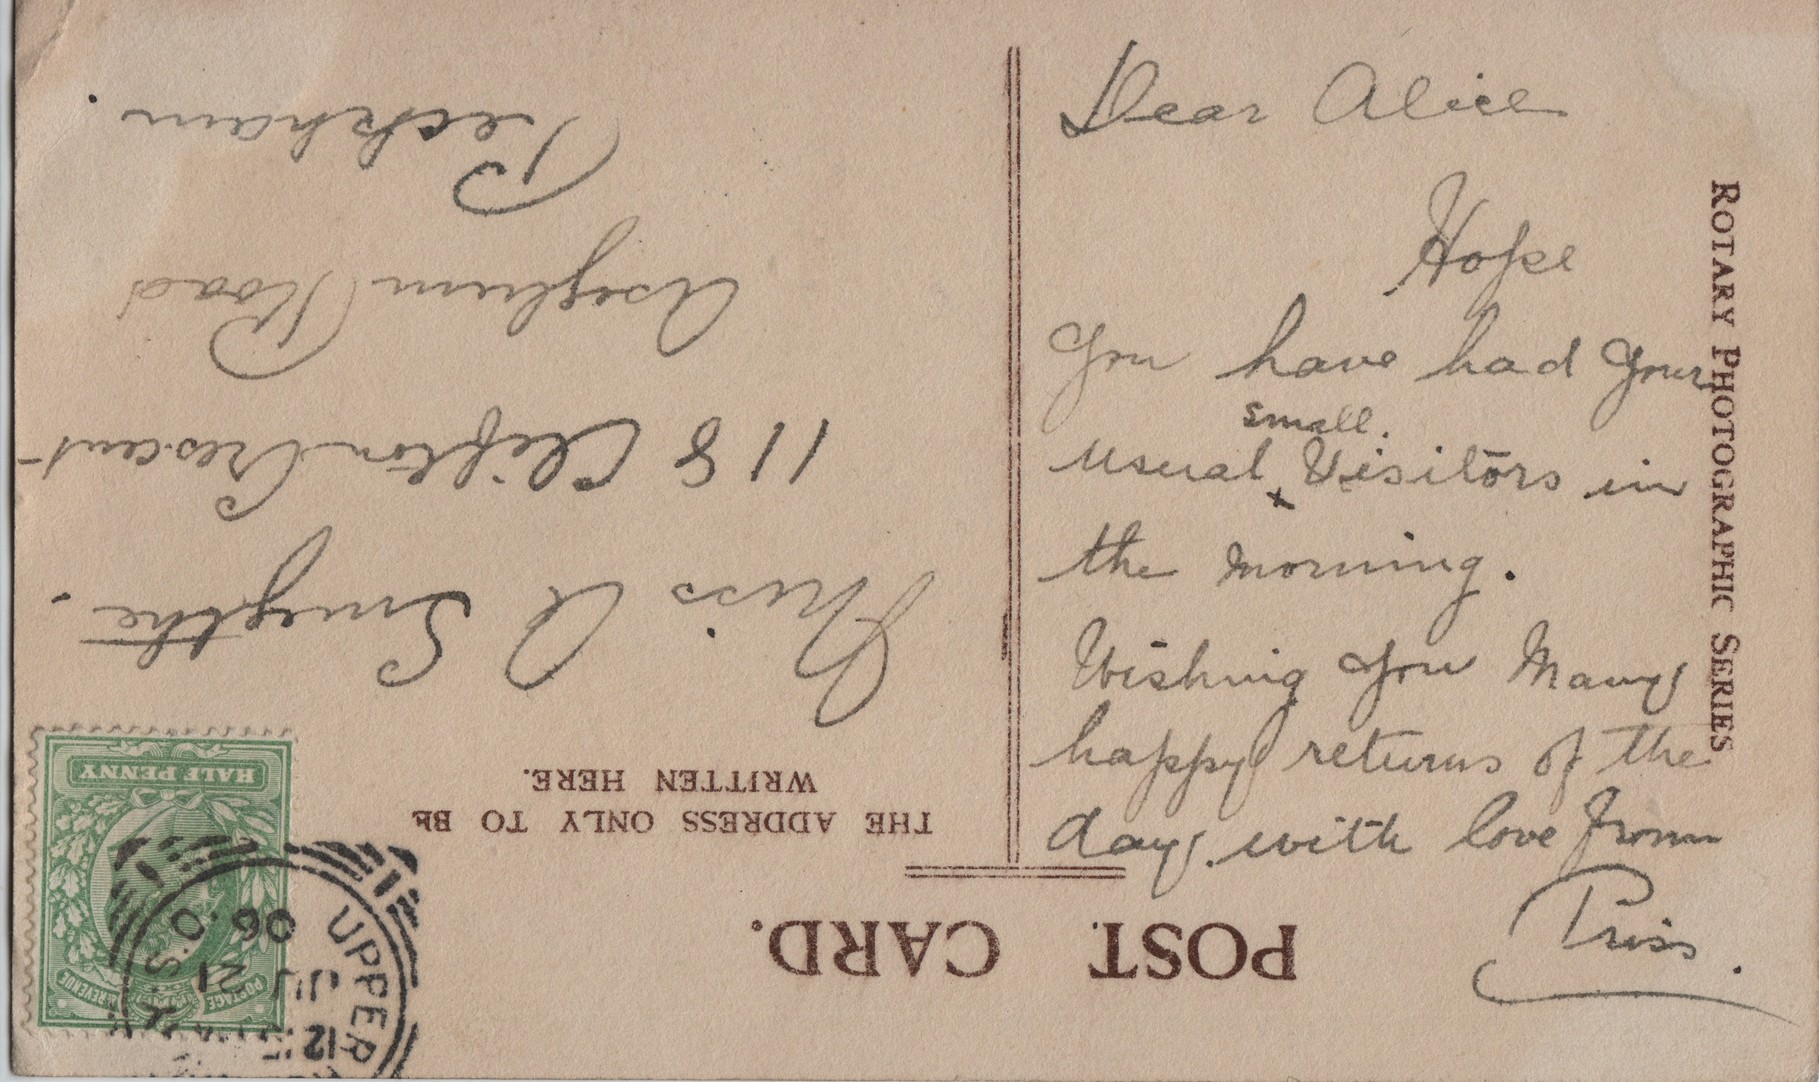 Dear Alice
Hope
you have had your
usual small. Visitors in
the morning.
Wishing you Many
happy returns of the
day. with love from
Priss.
ROTARY PHOTOGRAPHIC SERIES
POST CARD.
THE ADDRESS ONLY TO BE
WRITTEN HERE.
Miss A Smythe.
118 Clifton Crescent
Asylum Road
Peckham.
HALF PENNY
POSTAGE & REVENUE
UPPER
12
21
06
S.O.